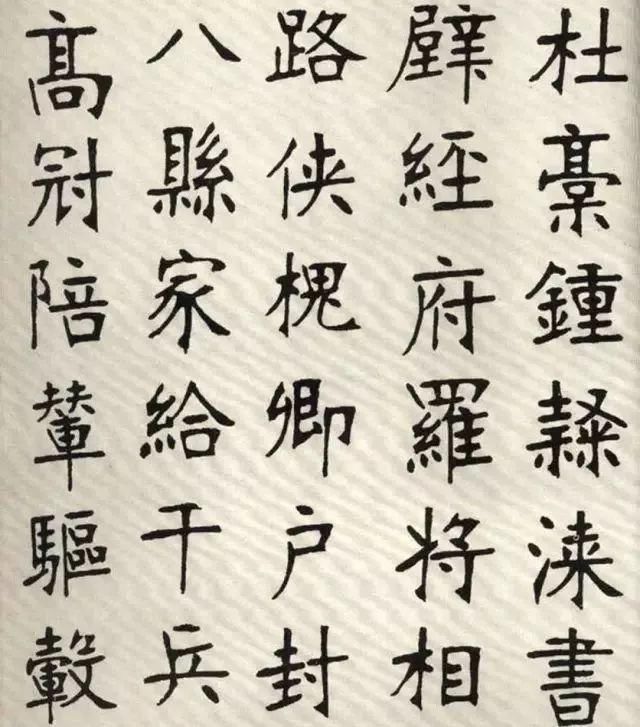 杜稾鍾隸漆書
壁經府羅将相
路侠槐卿户封
八縣家給千兵
髙冠陪輦驅轂